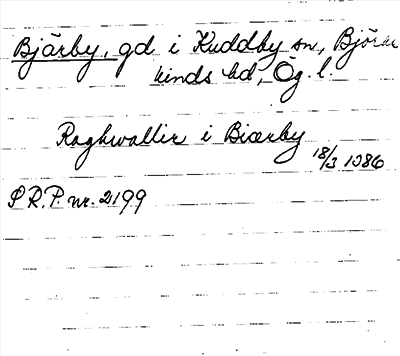 Bjärby, gd i Kuddby sn, Björke
kinds hd, Ög. l.
Raghwalter i Biærby
18/3 1386
S R.P. nr. 2199